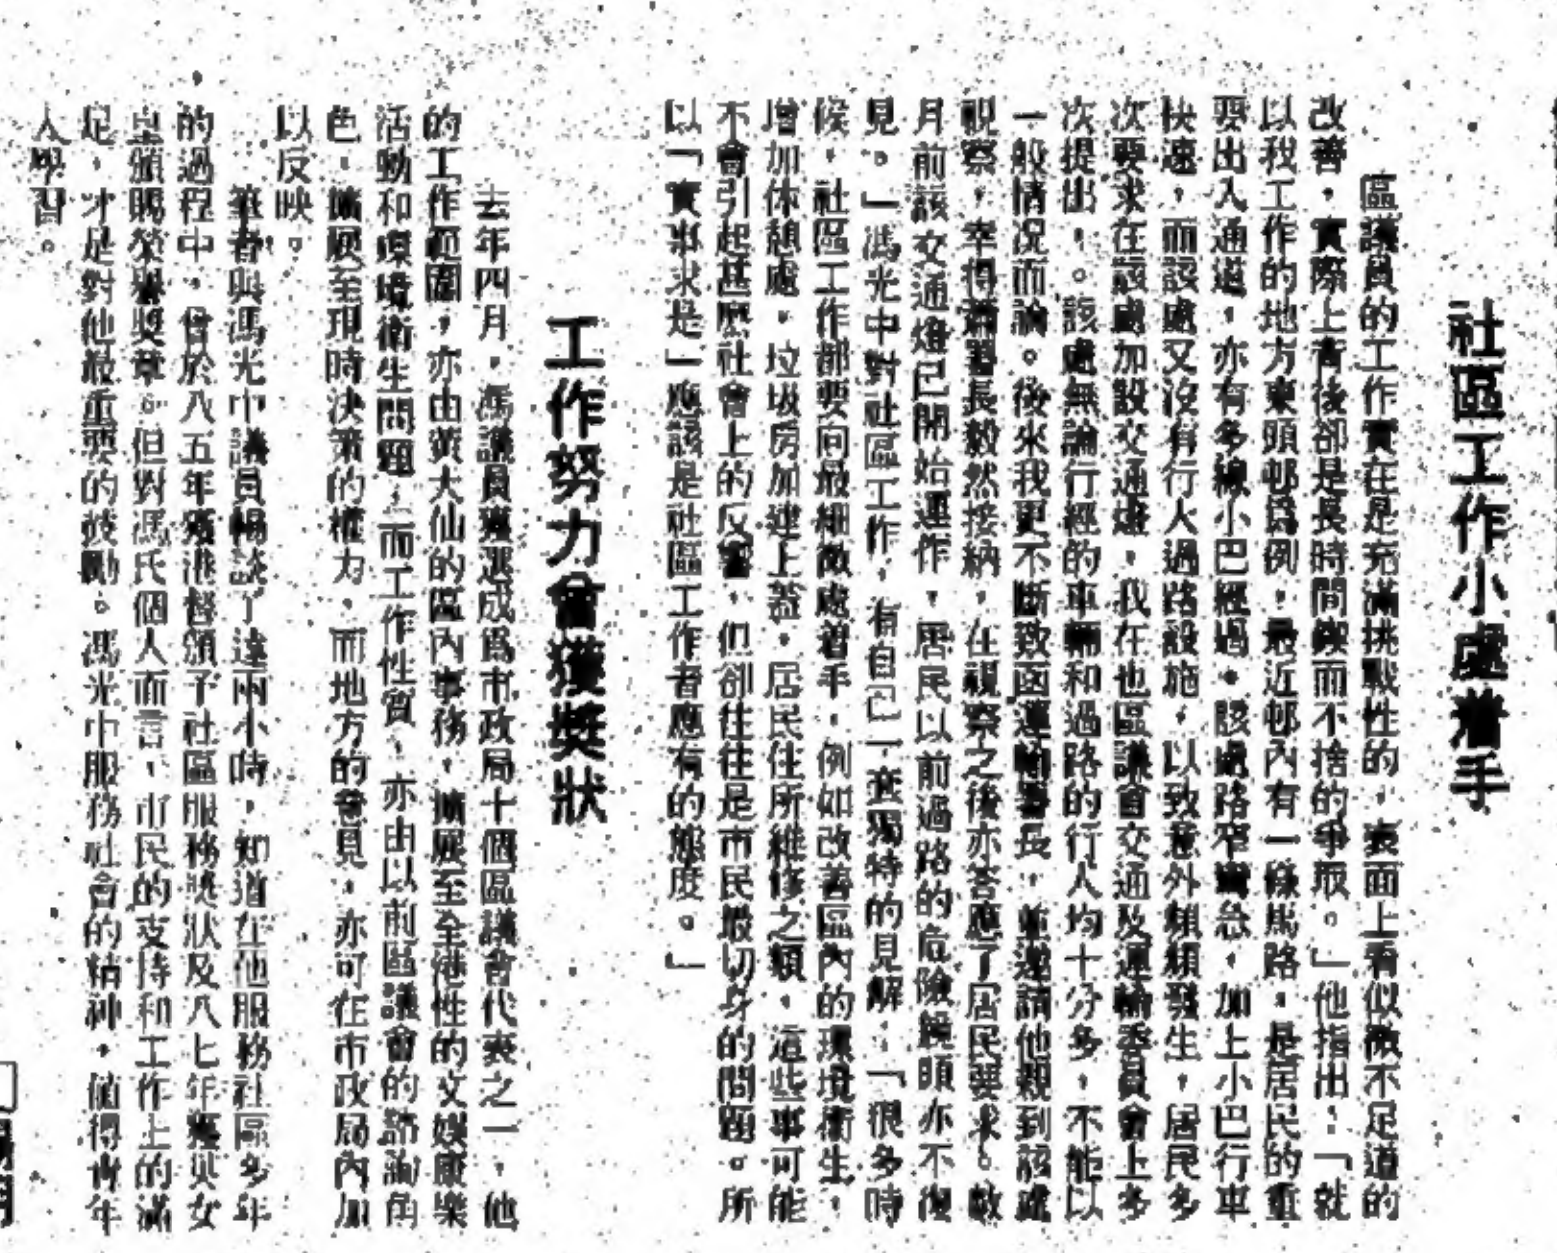 社區工作小處着手
區議員的工作實在是充滿挑戰性的，表面上看似微不足道的
改善，實際上背後卻是長時間鍥而不捨的爭取。」他指出：「就
以我工作的地方東頭邨爲例，最近邨內有一條馬路，是居民的重
要出入通道，亦有多線小巴經過。該處路窄彎急，加上小巴行車
快速，而該處又沒有行人過路設施，以致意外頻頻發生，居民多
次要求在該處加設交通燈，我在也區議會交通及運輸委員會上多
次提出，。該處無論行經的車輛和過路的行人均十分多，不能以
一般情況而論。後來我更不斷致函運輸署長，並邀請他親到該處
視察，幸得蕭署長毅然接納，在視察之後亦答應了居民要求。數
月前該交通燈已開始運作，居民以前過路的危險鏡頭亦不復
見。」馮光中對社區工作，有自己一套獨特的見解，「很多時
候，社區工作都要向最細微處着手，例如改善區內的環境衞生，
增加休憩處，垃圾房加建上蓋，居民住所維修之類，這些事可能
不會引起甚麽社會上的反響，但卻往往是市民最切身的問題。所
以「實事求是」應該是社區工作者應有的態度。」
工作努力會獲獎狀
去年四月，馮議員獲選成爲市政局十個區議會代表之一，他
的工作範圍，亦由黃大仙的區內事務，擴展至全港性的文娛康樂
活動和環境衞生問題，而工作性質，亦由以前區議會的諮詢角
色，擴展至現時決策的權力，而地方的意見，亦可在市政局內加
以反映。
筆者與馮光中議員暢談了達兩小時，知道在他服務社區多年
的過程中，曾於八五年獲港督頒予社區服務獎狀及八七年獲英女
皇頒賜榮譽獎章。但對馮氏個人而言，市民的支持和工作上的滿
足，才是對他最重要的鼓勵。馮光中服務社會的精神，値得青年
人學習。